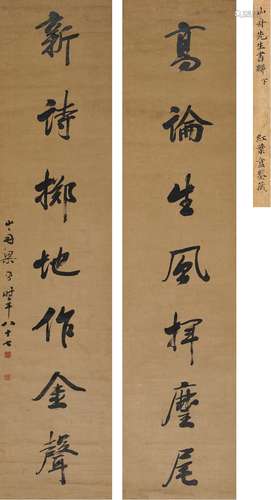 山舟先生書聯 下
紅葉盦鑒藏
高論生風揮麈尾
新詩擲地作金聲
山舟梁同書時年八十七